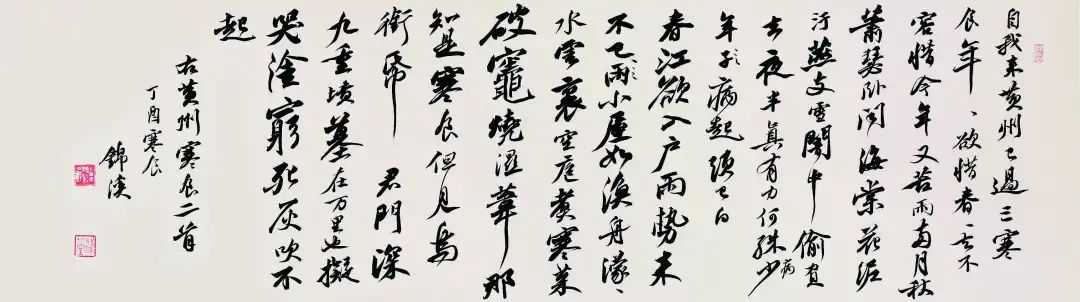 自我来黄州已過三寒
食年、欲惜春、去不
容惜今年又苦雨两月秋
蕭瑟卧闻海棠花泥
汙燕支雪闇中偷負
去夜半真有力何殊病少
年子病起须已白
春江欲入户雨势来
不已雨小屋如渔舟濛、
水雲裏空庖煮寒菜
破竈燒湿葦那
知是寒食但見烏
衔帋 君門深
九重墳墓在万里也擬
哭塗窮死灰吹不
起
右黄州寒食二首
丁酉寒食
錦